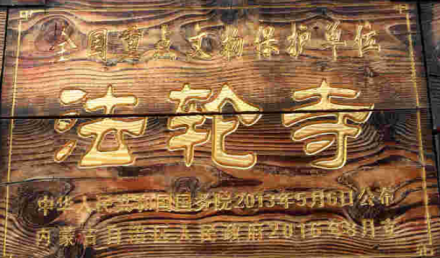 全国重点文物保护单位
法轮寺
中华人民共和国国务院2013年5月6日公布
内蒙古自治区人民政府2016年8月立